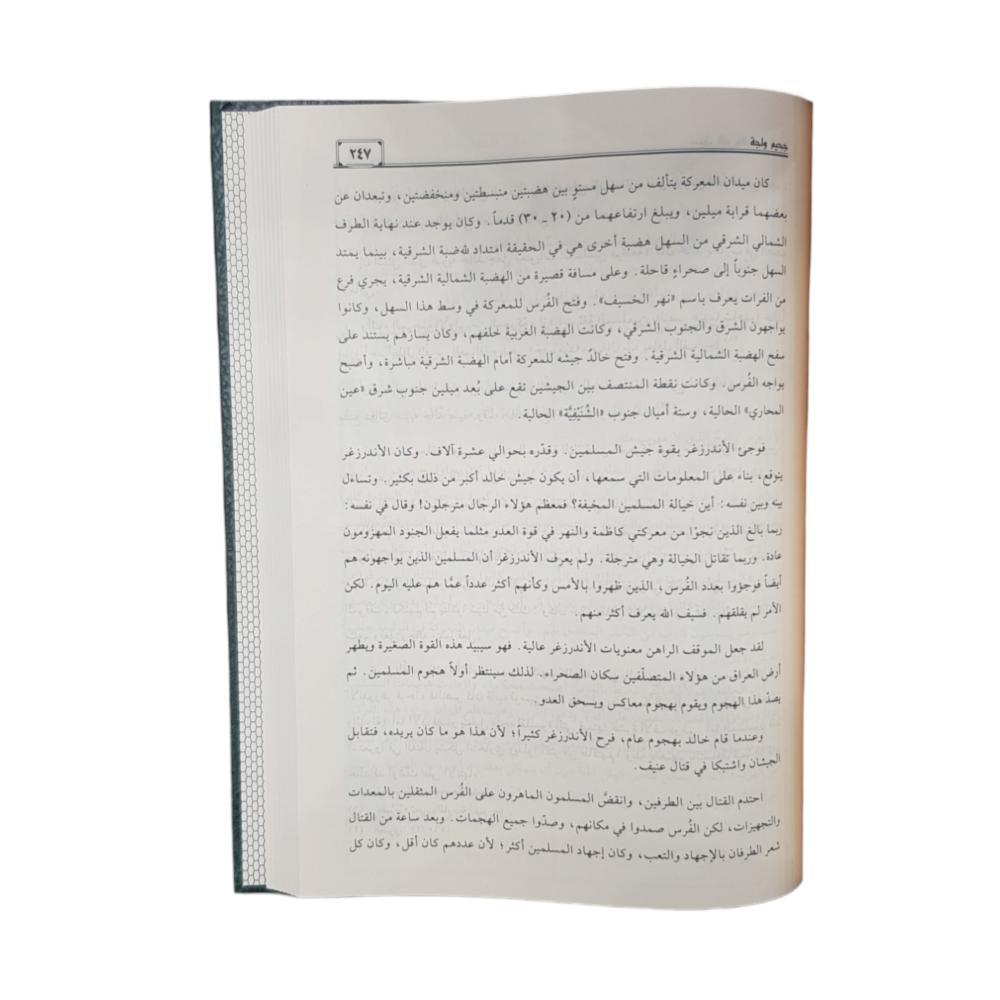 جحيم ولجة
٢٤٧
كان ميدان المعركة يتألف من سهل مستوٍ بين هضبتين منبسطتين ومنخفضتين، وتبعدان عن
بعضهما قرابة ميلين، ويبلغ ارتفاعهما من (٢٠ ـ ٣٠) قدماً. وكان يوجد عند نهاية الطرف
الشمالي الشرقي من السهل هضبة أخرى هي في الحقيقة امتداد للهضبة الشرقية، بينما يمتد
السهل جنوباً إلى صحراءٍ قاحلة. وعلى مسافة قصيرة من الهضبة الشمالية الشرقية، يجري فرع
من الفرات يعرف باسم «نهر الخسيف». وفتح الفُرس للمعركة في وسط هذا السهل، وكانوا
يواجهون الشرق والجنوب الشرقي، وكانت الهضبة الغربية خلفهم، وكان يسارهم يستند على
سفح الهضبة الشمالية الشرقية. وفتح خالدٌ جيشه للمعركة أمام الهضبة الشرقية مباشرة، وأصبح
يواجه الفُرس. وكانت نقطة المنتصف بين الجيشين تقع على بُعد ميلين جنوب شرق «عين
المحاري» الحالية، وستة أميال جنوب «الشُنَيْفِيَّة» الحالية.
فوجئ الأندرزغر بقوة جيش المسلمين. وقدّره بحوالي عشرة آلاف. وكان الأندرزغر
يتوقع، بناء على المعلومات التي سمعها، أن يكون جيش خالد أكبر من ذلك بكثير. وتساءل
بينه وبين نفسه: أين خيالة المسلمين المخيفة؟ فمعظم هؤلاء الرجال مترجلون! وقال في نفسه:
ربما بالغ الذين نجوْا من معركتي كاظمة والنهر في قوة العدو مثلما يفعل الجنود المهزومون
عادة. وربما تقاتل الخيالة وهي مترجلة. ولم يعرف الأندرزغر أن المسلمين الذين يواجهونه هم
أيضاً فوجؤوا بعدد الفُرس، الذين ظهروا بالأمس وكأنهم أكثر عدداً عمَّا هم عليه اليوم. لكن
الأمر لم يقلقهم. فسيف الله يعرف أكثر منهم.
لقد جعل الموقف الراهن معنويات الأندرزغر عالية. فهو سيبيد هذه القوة الصغيرة ويطهر
أرض العراق من هؤلاء المتصلّفين سكان الصحراء. لذلك سينتظر أولاً هجوم المسلمين. ثم
يصدّ هذا الهجوم ويقوم بهجوم معاكس ويسحق العدو.
وعندما قام خالد بهجوم عام، فرح الأندرزغر كثيراً؛ لأن هذا هو ما كان يريده، فتقابل
الجيشان واشتبكا في قتال عنيف.
احتدم القتال بين الطرفين، وانقضَّ المسلمون الماهرون على الفُرس المثقلين بالمعدات
والتجهيزات، لكن الفُرس صمدوا في مكانهم، وصدّوا جميع الهجمات. وبعد ساعة من القتال
شعر الطرفان بالإجهاد والتعب، وكان إجهاد المسلمين أكثر؛ لأن عددهم كان أقل، وكان كل